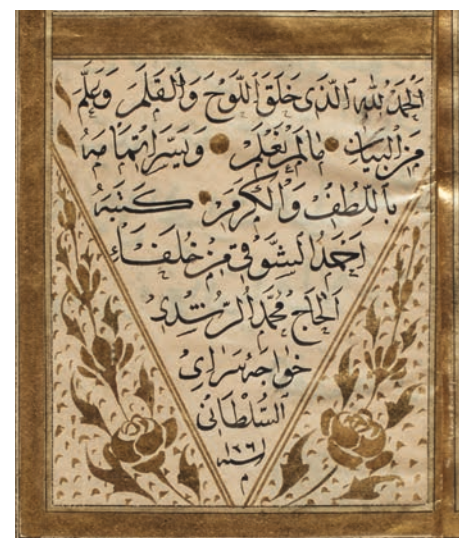 اَلْحَمْدُ لِلّٰهِ الَّذِى خَلَقَ اللَّوْحَ وَالْقَلَمَ وَعَلَّمَ
مِنَ الْبَيَانِ مَا لَمْ نَعْلَمْ وَيَسَّرَ اِتْمَامَهُ
بِاللُّطْفِ وَالْكَرَمِ كَتَبَهُ
اَحْمَدُ الشَّوْقِى مِنْ خُلَفَاءِ
اَلْحَاجّ مُحَمَّدُ الرُّشْدِى
خَواجَهٔ سَرَاىِ
السُّلْطَانِى
سنه